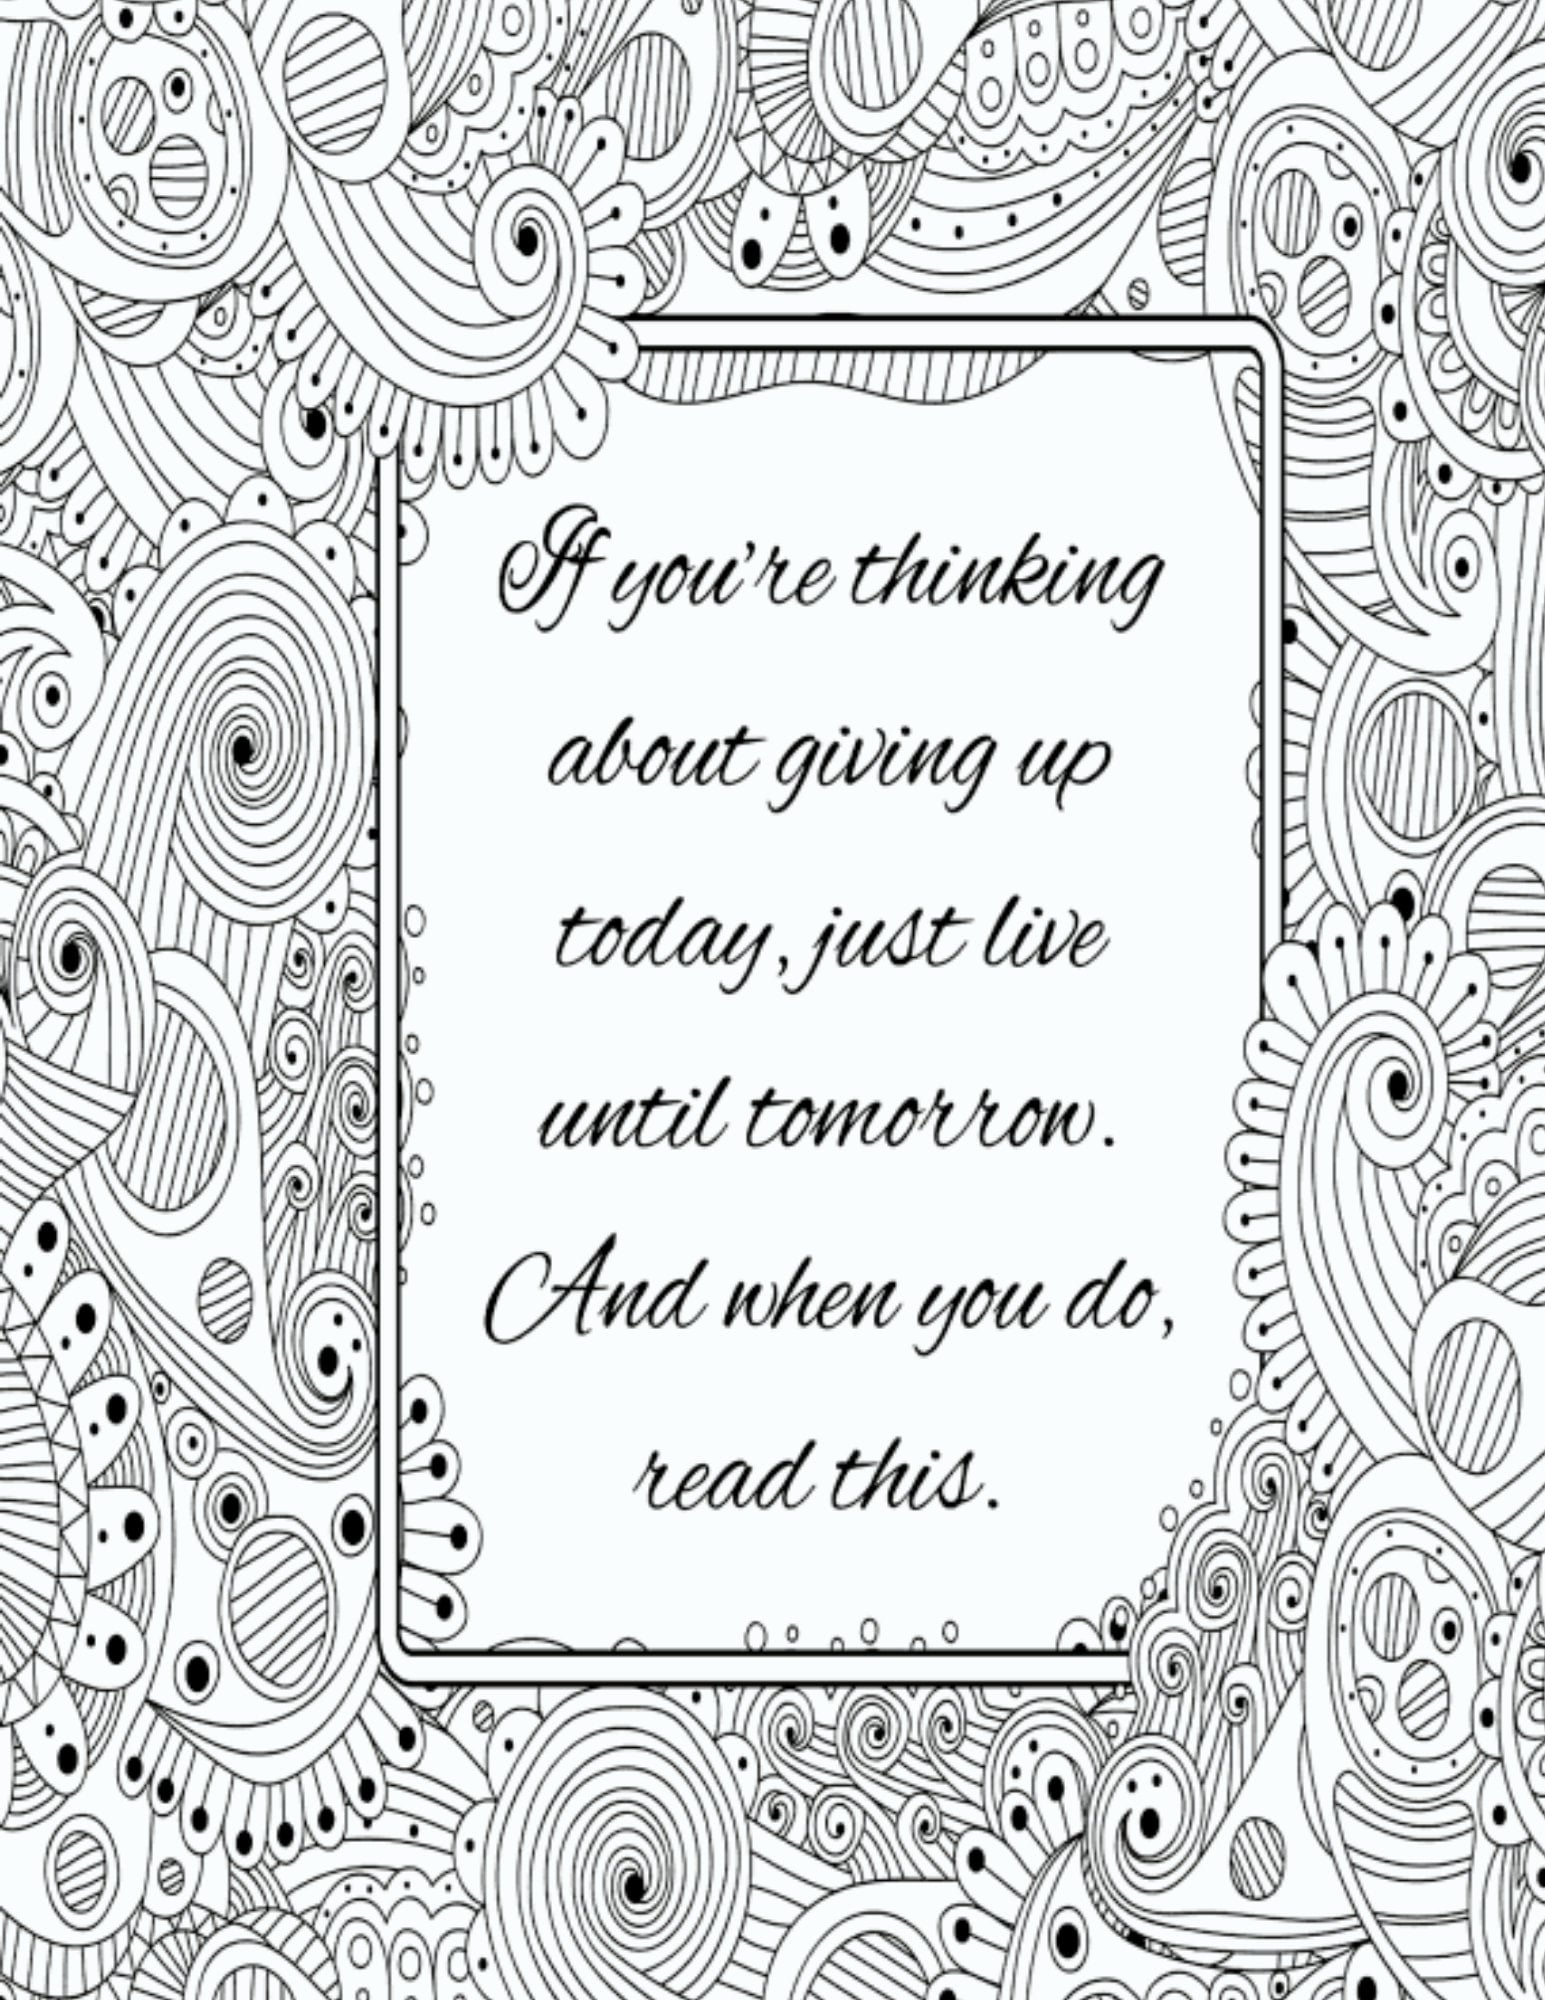 If you're thinking
about giving up
today, just live
until tomorrow.
And when you do,
read this.